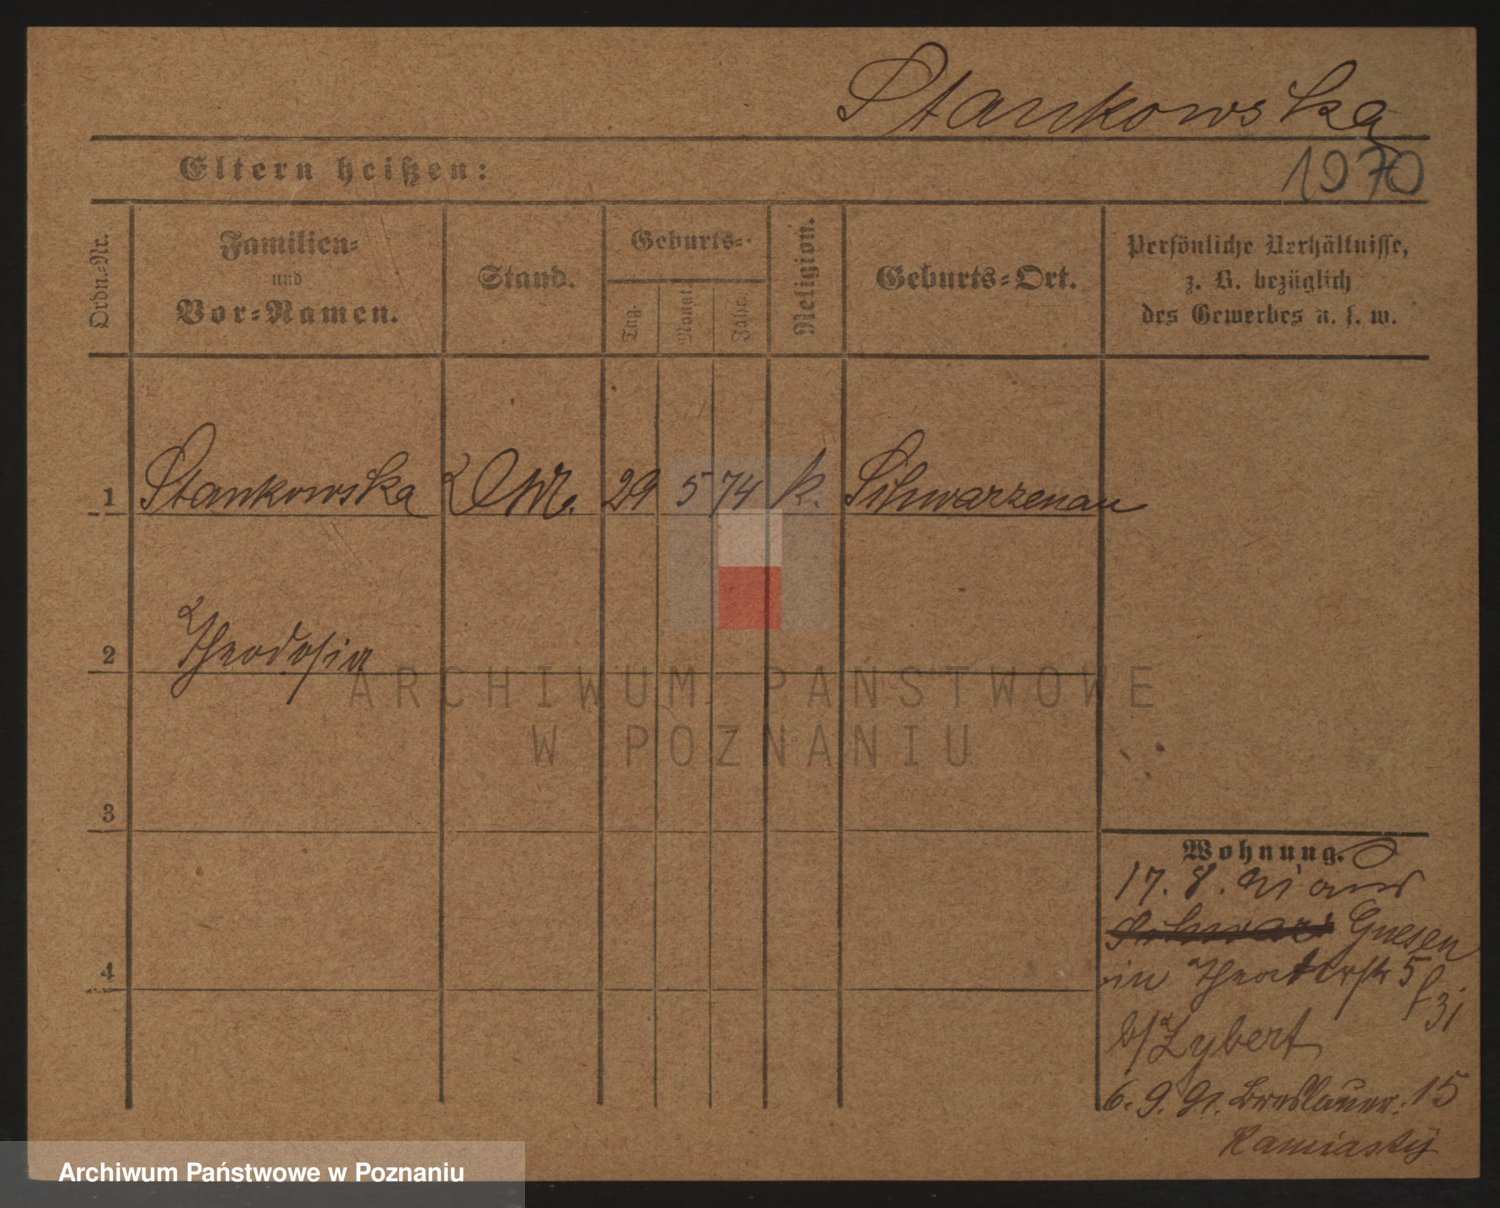 Stankowska
Eltern heißen:
1970
Ordn.-Nr.
Familien-
und
Vor-Namen.
Stand.
Geburts-
Tag.
Monat.
Jahr.
Religion.
Geburts-Ort.
Persönliche Verhältnisse,
z. B. bezüglich
des Gewerbes u. s. w.
1 Stankowska 29 5 74 k. Schwarzenau
2 Theodosia
3
4
Wohnung.
17. 8. 91 aus
Gnesen
in Theaterstr 5
b/ Zybert
6. 9. 91. Breslauer. 15
ARCHIWUM PAŃSTWOWE
W POZNANIU
Archiwum Państwowe w Poznaniu